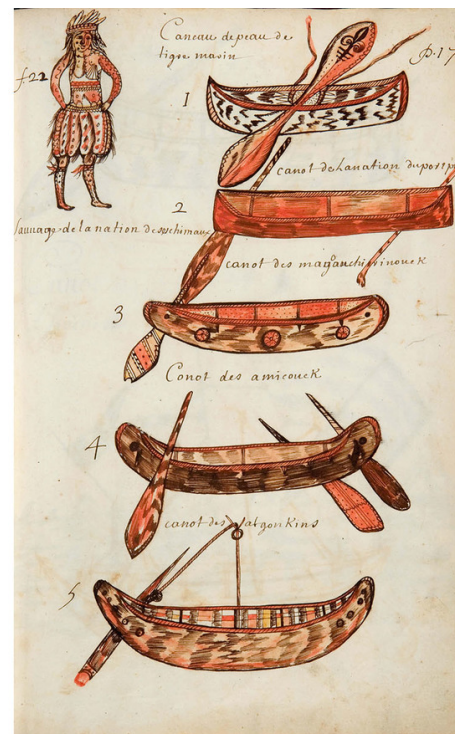 Caneau de peau de
tigre marin
p. 17
f. 22
1
canot de la nation du port
2
Sauvage de la nation des eschimaux
canot des magauchirinouek
3
Conot des amicouek
4
canot des algonkins
5